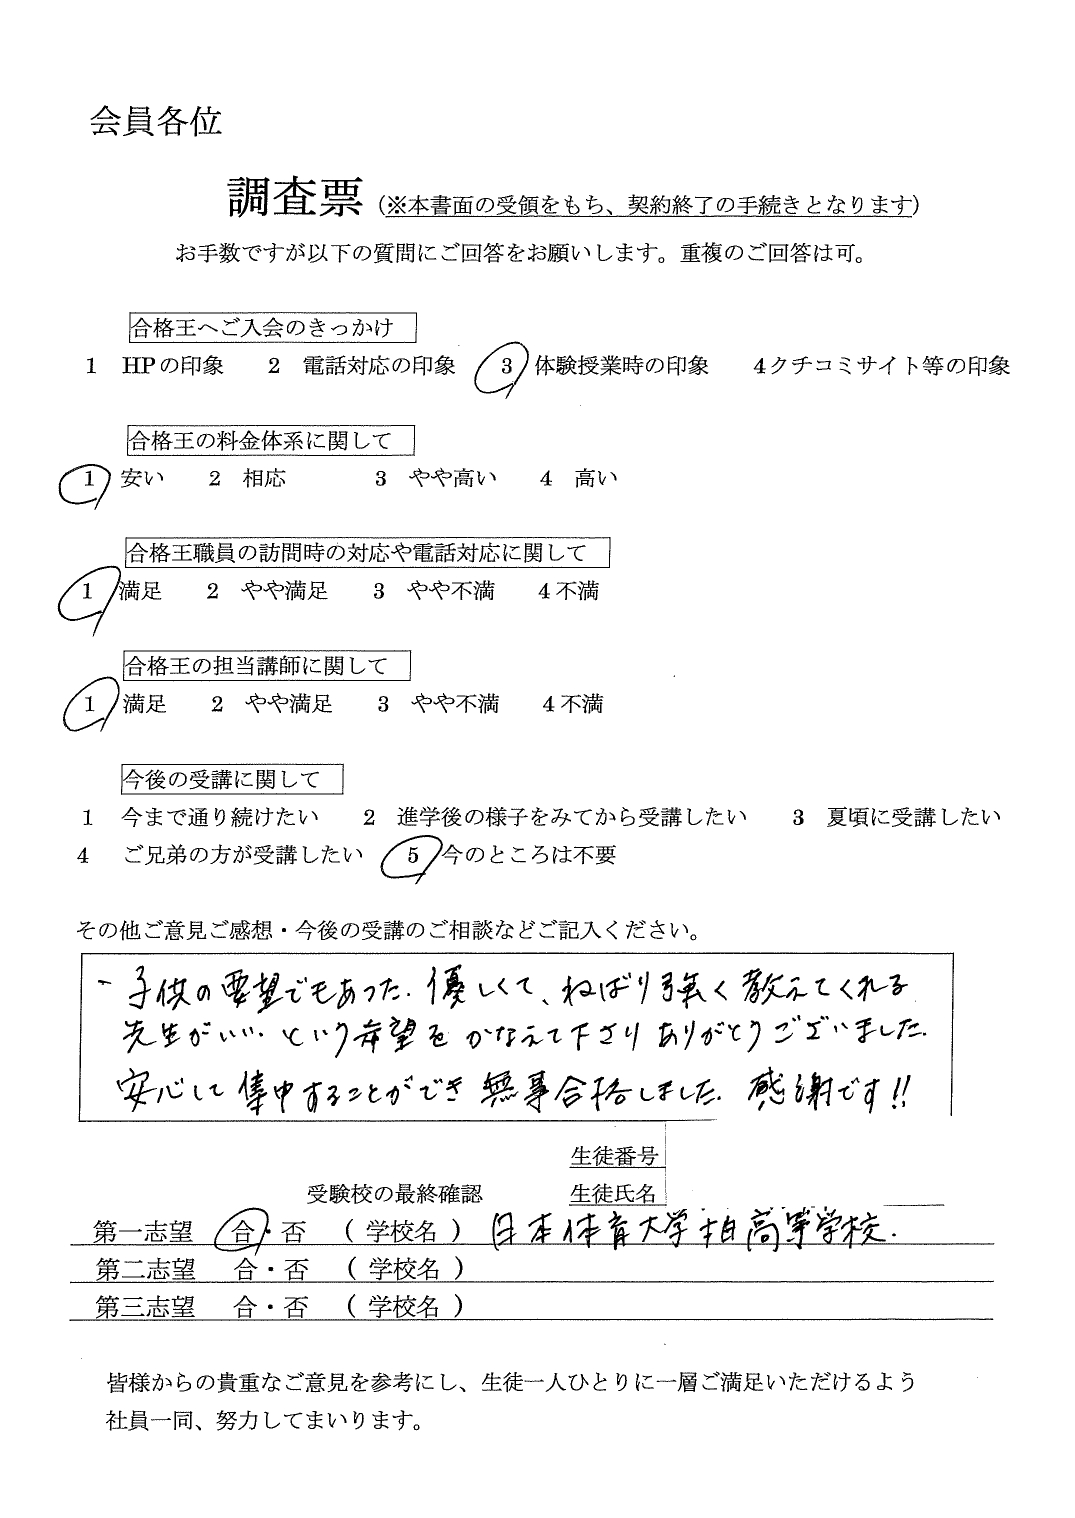 会員各位
調査票（※本書面の受領をもち、契約終了の手続きとなります）
お手数ですが以下の質問にご回答をお願いします。重複のご回答は可。
合格王へご入会のきっかけ
1 HPの印象 2 電話対応の印象 3 体験授業時の印象 4クチコミサイト等の印象
合格王の料金体系に関して
1 安い 2 相応 3 やや高い 4 高い
合格王職員の訪問時の対応や電話対応に関して
1 満足 2 やや満足 3 やや不満 4不満
合格王の担当講師に関して
1 満足 2 やや満足 3 やや不満 4不満
今後の受講に関して
1 今まで通り続けたい 2 進学後の様子をみてから受講したい 3 夏頃に受講したい
4 ご兄弟の方が受講したい 5 今のところは不要
その他ご意見ご感想・今後の受講のご相談などご記入ください。
子供の要望でもあった.優しくて、ねばり強く教えてくれる
先生がいい.という希望をかなえて下さりありがとうございました.
安心して集中することができ無事合格しました.感謝です!!
生徒番号
受験校の最終確認 生徒氏名
第一志望 合・否 （学校名）日本体育大学柏高等学校.
第二志望 合・否 （学校名）
第三志望 合・否 （学校名）
皆様からの貴重なご意見を参考にし、生徒一人ひとりに一層ご満足いただけるよう
社員一同、努力してまいります。